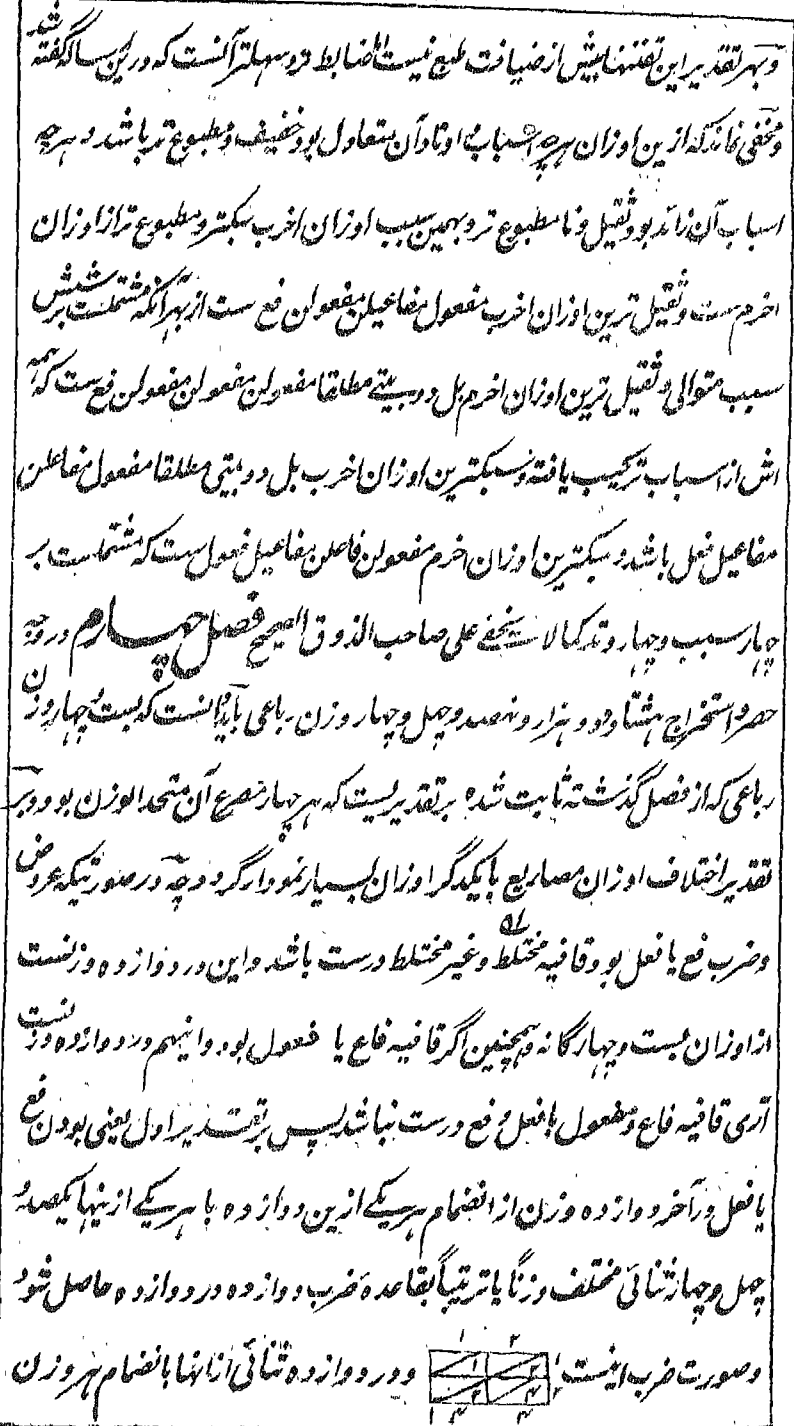 وبهر تقدیر این تفننها بیش از ضیافت طبع نیست اضابط تر و سهلتر آنست که درین رساله گفته شد
و مخفی نماند که ازین اوزان هرچه اسباب و اوتاد آن متعادل بود خفیف و مطبوع تر باشد و هرچه
اسباب آن زائد بود ثقیل و نا مطبوع تر و بهمین سبب اوزان اخرب سبکتر و مطبوع تر از اوزان
اخرم ست و ثقیل ترین اوزان اخرب مفعول مفاعیلن مفعولن فع ست از بهر آنکه مشتملست بر شش
سبب متوالی و ثقیل ترین اوزان اخرم بل دو بیتے مطلقا مفعولن مفعولن مفعولن فع ست که همه
اش از اسباب ترکیب یافته و سبکترین اوزان اخرب بل دو بیتی مطلقا مفعول مفاعلن
مفاعیل فعل باشد و سبکترین اوزان اخرم مفعولن فاعلن مفاعیل فعول ست که مشتملست بر
چهار سبب و چهار وتد کمالا یخفے علی صاحب الذوق الصحیح فصل چهارم در وجه
حصر و استخراج هشتاد و دو هزار و نهصد و چهل و چهار وزن رباعی باید دانست که بست و چهار وزن
رباعی که از فصل گذشته ثابت شده بر تقدیریست که هر چهار مصرع آن متحد الوزن بود و بر
تقدیر اختلاف اوزان مصاریع با یکدگر اوزان بسیار نمودار گردد چه در صورتیکه عروض
و ضرب فع یا فعل بود قافیه مختلط و غیر مختلط درست باشد و این در دوازده وزنست
از اوزان بست و چهارگانه و همچنین اگر قافیه فاع یا فعول بود و اینهم در دوازده وزنست
آری قافیه فاع و فعول با فعل و فع درست نباشد پس بر تقدیر اول یعنی بودن فع
یا فعل در آخر دوازده وزن از انضمام هر یکے ازین دوازده با هر یکے ازینها یکصد و
چهل و چهار ثنائی مختلف وزنًا یا ترتیبًا بقاعدهٔ ضرب دوازده در دوازده حاصل شود
و صورت ضرب اینست و در دوازده ثنائی ازانها بانضمام هر وزن